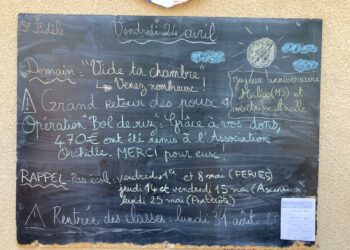 St Fidèle
Vendredi 24 avril
Demain : "Vide ta chambre"
↳ Venez nombreux !
Joyeux anniversaire
⚠ Grand Retour des poux
Opération "Bol de riz" : Grâce à vos dons,
470€ ont été remis à l'Association
Orchidée. MERCI pour eux !
RAPPEL : Pas école : vendredis 1er et 8 mai (FERIES)
jeudi 14 et vendredi 15 mai
lundi 25 mai (Pentecôte)
⚠ Rentrée des classes = lundi 31 août